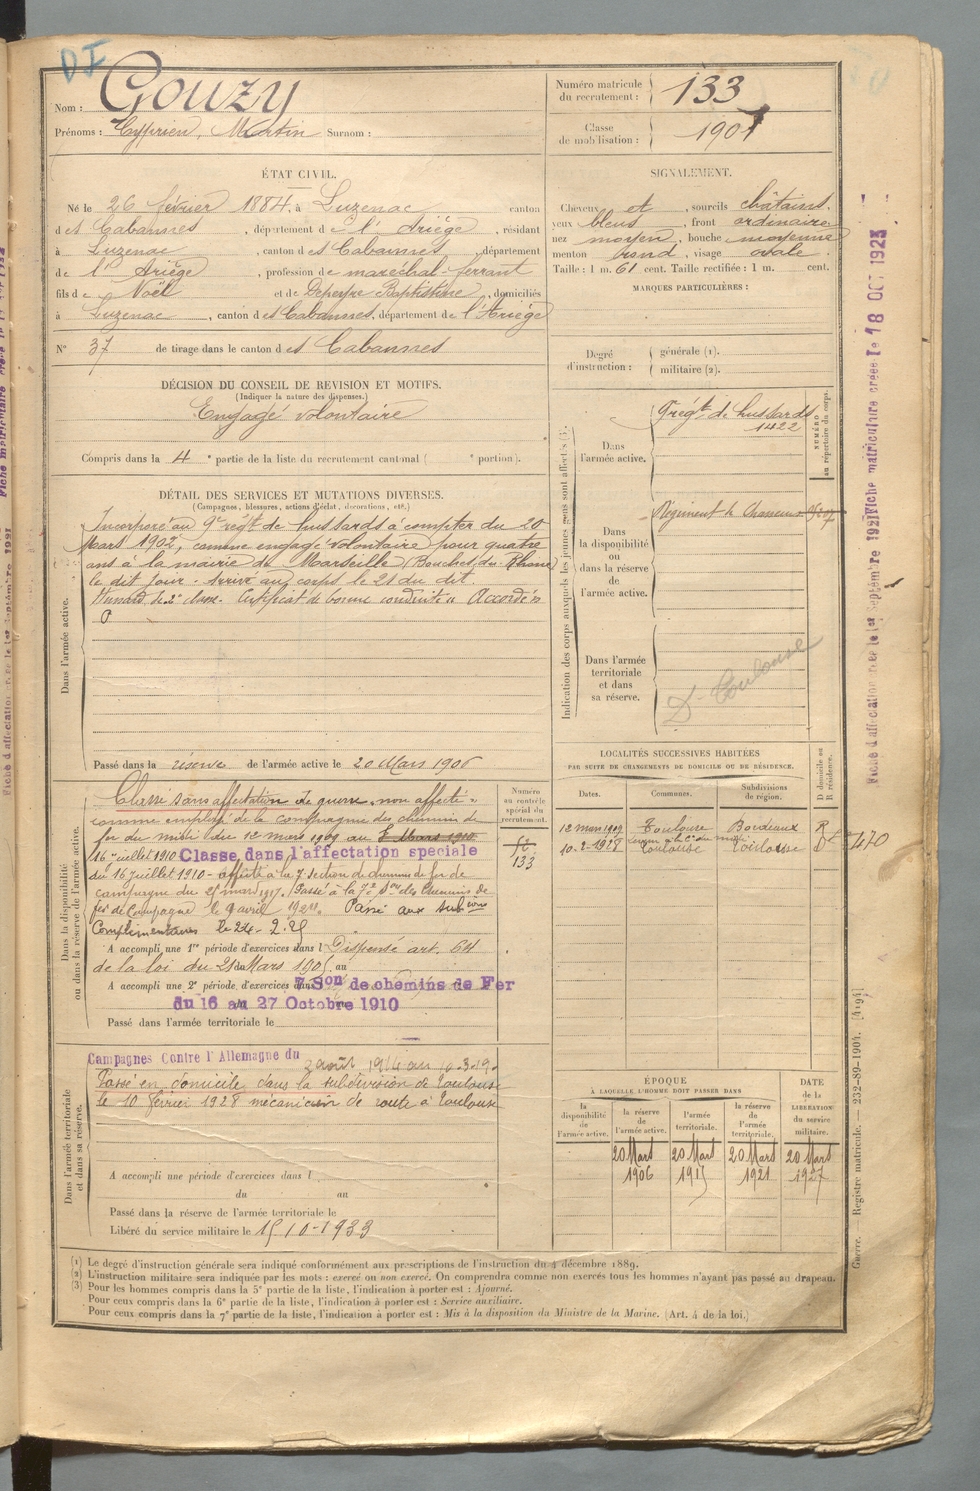 DI
Nom : Gouzy
Prénoms : Cyprien, Martin Surnom :
Numéro matricule du recrutement : 133
Classe de mobilisation : 1901
ÉTAT CIVIL.
Né le 26 février 1884, à Luzenac canton
des Cabannes, département de l'Ariège, résidant
à Luzenac, canton des Cabannes, département
de l'Ariège, profession de maréchal-ferrant
fils de Noël et de Depeyre Baptistine, domiciliés
à Luzenac, canton des Cabannes, département de l'Ariège
N° 37 de tirage dans le canton des Cabannes
SIGNALEMENT.
Cheveux et, sourcils châtains.
yeux bleus, front ordinaire
nez moyen, bouche moyenne
menton rond, visage ovale.
Taille : 1 m. 61 cent. Taille rectifiée : 1 m. cent.
MARQUES PARTICULIÈRES :
Degré d'instruction :
générale (1).
militaire (2).
DÉCISION DU CONSEIL DE REVISION ET MOTIFS.
(Indiquer la nature des dispenses.)
Engagé volontaire
Compris dans la 4e partie de la liste du recrutement cantonal ( e portion).
DÉTAIL DES SERVICES ET MUTATIONS DIVERSES.
(Campagnes, blessures, actions d'éclat, décorations, etc.)
Dans l'armée active.
Incorporé au 9e régt de hussards à compter du 20
Mars 1902, comme engagé volontaire pour quatre
ans à la mairie de Marseille (Bouches du Rhône)
le dit jour. Arrivé au corps le 21 du dit.
Hussard de 2e classe. Certificat de bonne conduite « Accordé »
Passé dans la réserve de l'armée active le 20 Mars 1906
Indication des corps auxquels les jeunes gens sont affectés (3).
Dans l'armée active.
régt de hussards
1422
NUMÉRO au répertoire du corps.
Dans la disponibilité ou dans la réserve de l'armée active.
Régiment de Chasseurs
Dans l'armée territoriale et dans sa réserve.
D. Toulouse
Dans la disponibilité ou dans la réserve de l'armée active.
Classé sans affectation de guerre « non affecté »
comme employé de la compagnie des chemins de
fer du midi du 12 mars 1909 au
16 juillet 1910 Classé dans l'affectation spéciale
du 16 juillet 1910 - affecté à la 7e section de chemin de fer de
campagne du 25 mars 1917. Passé à la 7e Son des Chemins de
fer de Campagne le 9 avril Passé aux subons
Complémentaires le 24-2-25
A accompli une 1re période d'exercices dans l Dispensé art. 64
de la loi du 21 Mars 1905 au
A accompli une 2e période d'exercices dans 7 Son de chemins de Fer
du 16 au 27 Octobre 1910
Passé dans l'armée territoriale le
Numéro au contrôle spécial du recrutement.
133
LOCALITÉS SUCCESSIVES HABITÉES
PAR SUITE DE CHANGEMENTS DE DOMICILE OU DE RÉSIDENCE.
Dates. Communes. Subdivisions de région. D domicile ou R résidence.
12 mars 1909 Toulouse Bordeaux R
10-2-1928 Toulouse Toulouse D 470
Dans l'armée territoriale et dans sa réserve.
Campagnes Contre l'Allemagne du 2 août 1914 au
Passé en domicile dans la subdivision de Toulouse
le 10 février 1928 mécanicien de route à Toulouse
A accompli une période d'exercices dans l
du au
Passé dans la réserve de l'armée territoriale le
Libéré du service militaire le 15-10-1933
ÉPOQUE
À LAQUELLE L'HOMME DOIT PASSER DANS
la disponibilité de l'armée active.
la réserve de l'armée active.
l'armée territoriale.
la réserve de l'armée territoriale.
DATE de la LIBÉRATION du service militaire.
20 Mars 1906
20 Mars 1915
20 Mars 1921
20 Mars 1927
(1) Le degré d'instruction générale sera indiqué conformément aux prescriptions de l'instruction du 4 décembre 1889.
(2) L'instruction militaire sera indiquée par les mots : exercé ou non exercé. On comprendra comme non exercés tous les hommes n'ayant pas passé au drapeau.
(3) Pour les hommes compris dans la 5e partie de la liste, l'indication à porter est : Ajourné.
Pour ceux compris dans la 6e partie de la liste, l'indication à porter est : Service auxiliaire.
Pour ceux compris dans la 7e partie de la liste, l'indication à porter est : Mis à la disposition du Ministre de la Marine. (Art. 4 de la loi.)
Guerre. Registre matricule. — 232-89-1904. [4194]
Fiche d'affectation créée le 1er Septembre 1921 Fiche matriculaire créée le 18 OCT 1923